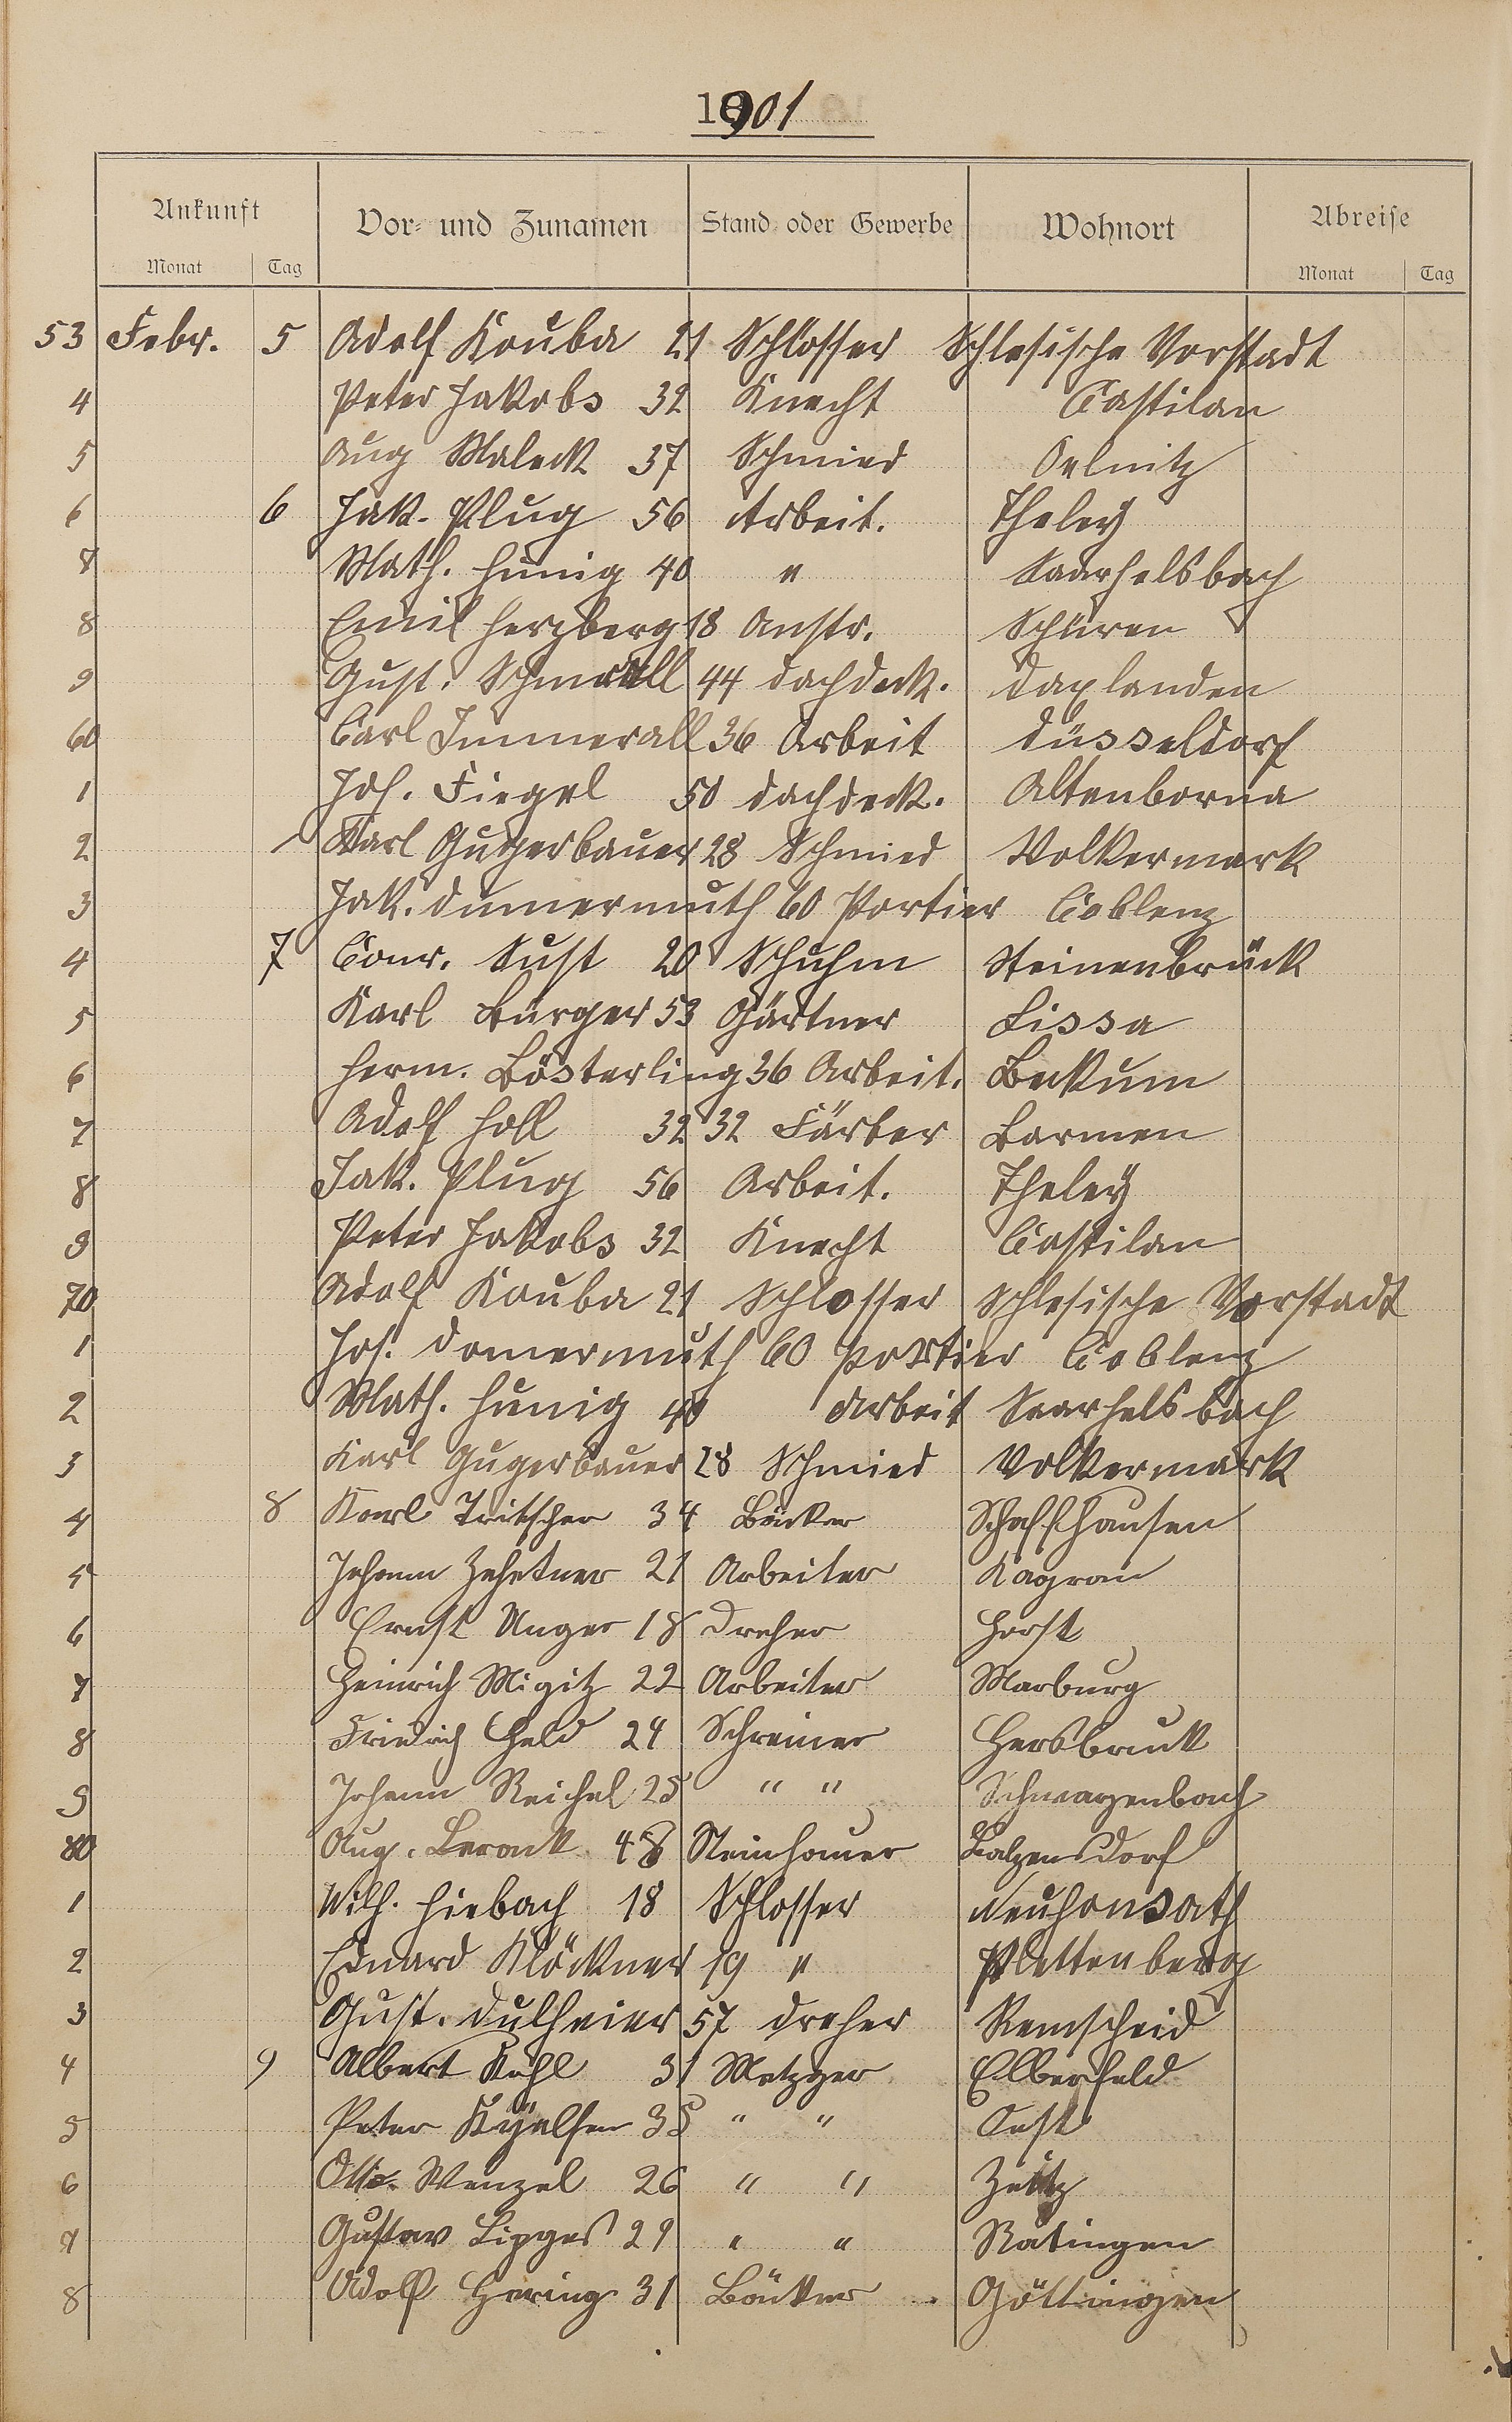 1901
Ankunft Vor- und Zunamen Stand oder Gewerbe Wohnort Abreise
Monat Tag Monat Tag
53 Febr. 5 Adolf Kouba 21 Schlosser Schlesische Vorstadt
4 Peter Jakobs 32 Knecht Castilan
5 Aug Maleck 37 Schmied Oelnitz
6 6 Jak. Plug 56 Arbeit. Theley
7 Math. Hunig 40 " Saarhelsbach
8 Emil Herzberg 18 Anstr. Schüren
9 Gust. 44 Dachdeck. Daxlanden
60 Carl Immerall 36 Arbeit Düsseldorf
1 Joh. Fiegel 50 Dachdeck. Altenborna
2 Karl Gugerbauer 28 Schmied Volkermark
3 Jak. Dumermuth 60 Portier Coblenz
4 7 Conr. Sust 20 Schuhm Steinenbrück
5 Karl Burger 53 Gärtner Lissa
6 Herm. Bösterling 36 Arbeit. Beckum
7 Adolf Holl 32 32 Färber Barmen
8 Jak. Plug 56 Arbeit. Theley
9 Peter Jakobs 32 Knecht Castilan
70 Adolf Kouba 21 Schlosser Schlesische Vorstadt
1 Jos. Domermuth 60 Portier Coblenz
2 Math. Hunig 40 Arbeit Saarhelsbach
3 Karl Gugerbauer 28 Schmied Volkermark
4 8 Karl Tritscher 34 Bäcker Schaffhausen
5 Johann Zehetner 21 Arbeiter Kagran
6 Ernst Unger 18 Dreher Horst
7 Heinrich Migitz 22 Arbeiter Marburg
8 Friedrich Held 24 Schreiner Hersbruck
9 Johann Reichel 25 " " Schwarzenbach
80 Aug. 48 Steinhauer Balzensdorf
1 Wilh. Hiebach 18 Schlosser Neuhonsath
2 Eduard Klöckner 19 " Plettenberg
3 Gust. Dulheier 57 Dreher Remscheid
4 9 Albert Kuhl 31 Metzger Elberfeld
5 Peter 35 " "
6 Otto Wenzel 26 " " Zeitz
7 Gustav Lipges 29 " " Ratingen
8 Adolf Hering 31 Bäcker Göttingen